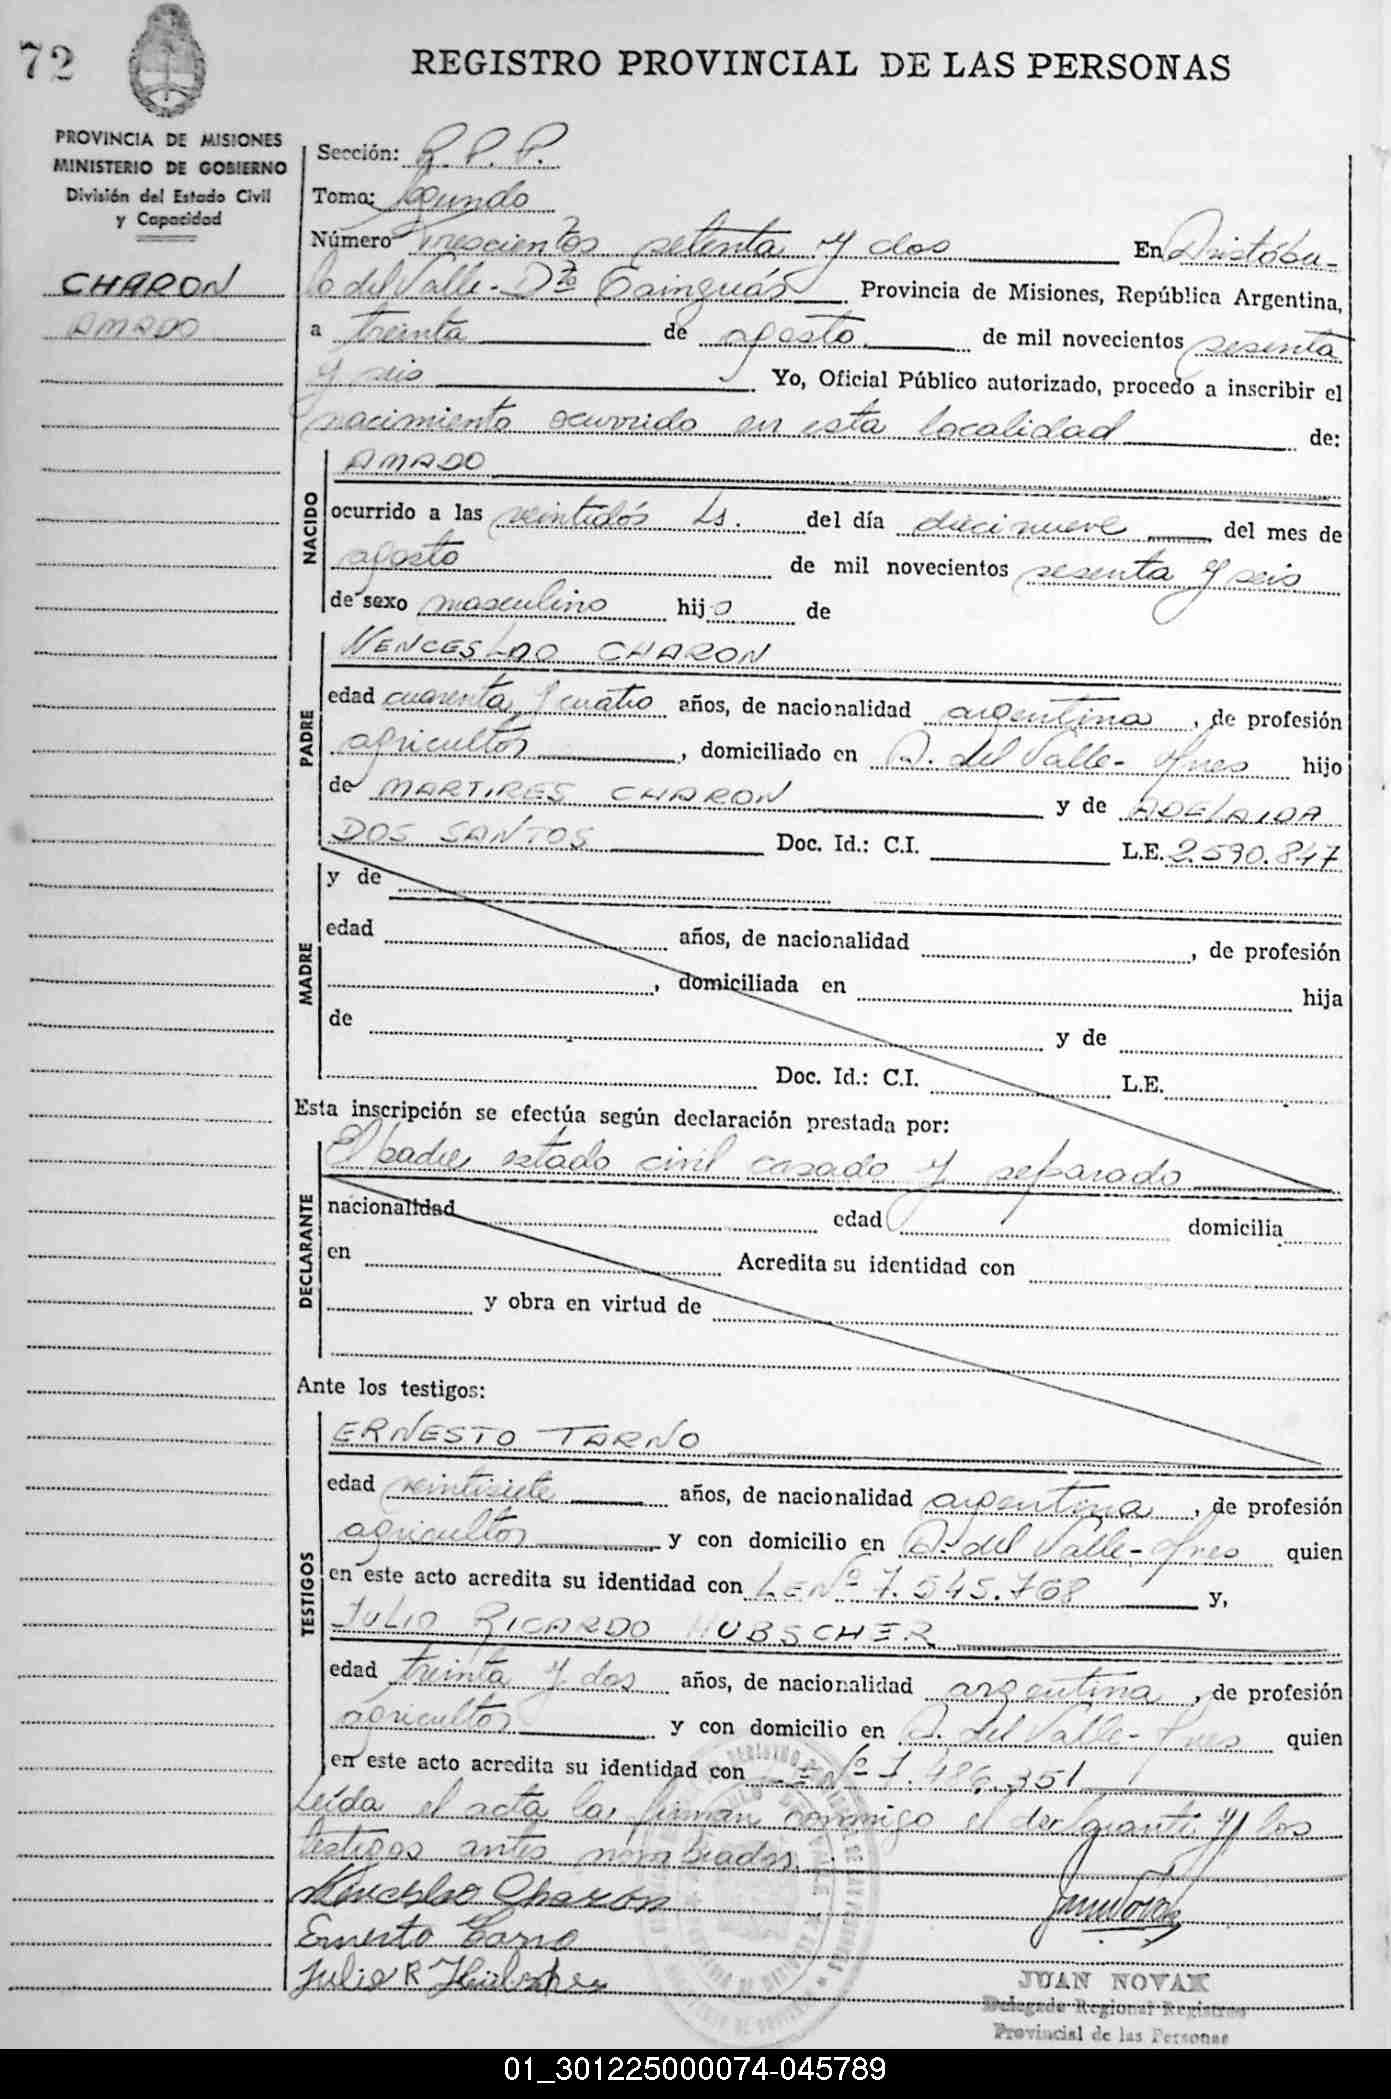 72
REGISTRO PROVINCIAL DE LAS PERSONAS
PROVINCIA DE MISIONES
MINISTERIO DE GOBIERNO
División del Estado Civil
y Capacidad
CHARON
AMADO
Sección: R. P. P.
Tomo: Segundo
Número Trescientos setenta y dos En Aristóbu-
lo del Valle - Dto Cainguás. Provincia de Misiones, República Argentina,
a treinta de agosto de mil novecientos sesenta
y seis. Yo, Oficial Público autorizado, procedo a inscribir el
nacimiento ocurrido en esta localidad de:
NACIDO
AMADO
ocurrido a las veintidós hs. del día diecinueve del mes de
agosto de mil novecientos sesenta y seis
de sexo masculino hijo de
PADRE
WENCESLAO CHARON
edad cuarenta y cuatro años, de nacionalidad argentina, de profesión
agricultor, domiciliado en A. del Valle - Mnes hijo
de MARTIRES CHARON y de ADELAIDA
DOS SANTOS Doc. Id.: C.I. L.E. 2.590.847
MADRE
y de
edad años, de nacionalidad , de profesión
, domiciliada en hija
de y de
Doc. Id.: C.I. L.E.
Esta inscripción se efectúa según declaración prestada por:
DECLARANTE
El padre estado civil casado y separado
nacionalidad edad domicilia
en Acredita su identidad con
y obra en virtud de
Ante los testigos:
TESTIGOS
ERNESTO TARNO
edad veintisiete años, de nacionalidad argentina, de profesión
agricultor y con domicilio en A. del Valle - Mnes quien
en este acto acredita su identidad con LE Nº 7.545.768 y,
JULIO RICARDO HUBSCHER
edad treinta y dos años, de nacionalidad argentina, de profesión
agricultor y con domicilio en A. del Valle - Mnes quien
en este acto acredita su identidad con LE Nº 7.486.351
Leída el acta la firman conmigo el declarante y los
testigos antes nombrados.
Wenceslao Charon
Ernesto Tarno
Julio R Hübscher
JUAN NOVAK
Delegado Regional Registro
Provincial de las Personas
01_301225000074-045789